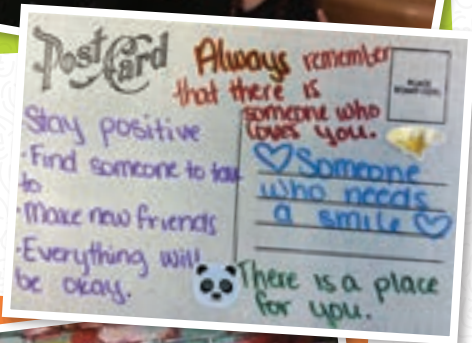 Post Card
Always remember
that there is
someone who
loves you.
Stay positive
-Find someone to talk
to
-Make new friends
-Everything will
be okay.
PLACE
♡Someone
who needs
a smile♡
There is a place
for you.